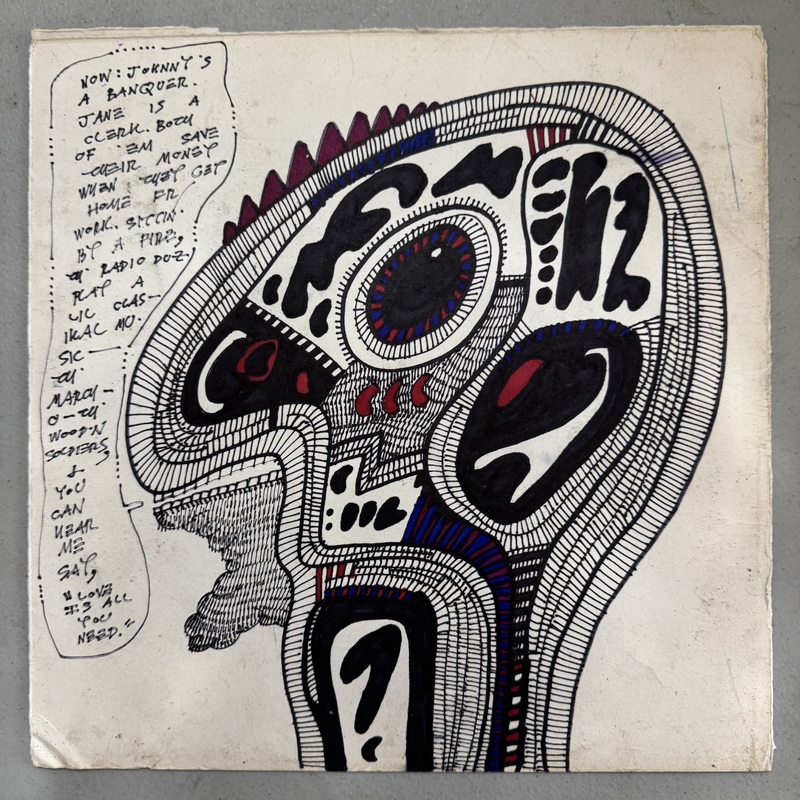 NOW: JOHNNY'S
A BANQUER.
JANE IS A
CLERK. BOTH
OF 'EM SAVE
THEIR MONEY
WHEN THEY GET
HOME FR/
WORK. SITTIN'
BY A FIRE,
TH' RADIO DOZ-
PLAY A
LIL CLAS-
IKAL MU-
SIC —
TH'
MARCH-
O-TH'
WOOD'N
SOLDIERS,
&
YOU
CAN
HEAR
ME
SAY,
"LOVE
IS ALL
YOU
NEED."